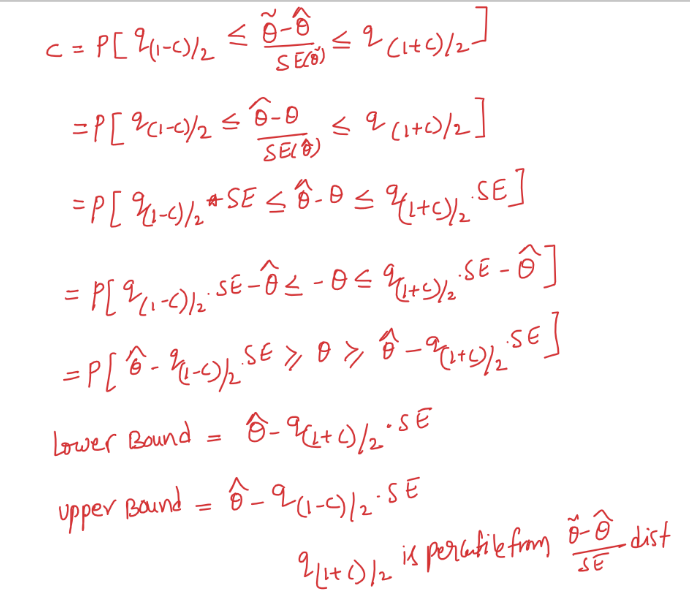 c = P[ q_{(1-c)/2} ≤ \frac{θ̃ - θ̂}{SE(θ̃)} ≤ q_{(1+c)/2} ]
= P[ q_{(1-c)/2} ≤ \frac{θ̂ - θ}{SE(θ̂)} ≤ q_{(1+c)/2} ]
= P[ q_{(1-c)/2} * SE ≤ θ̂ - θ ≤ q_{(1+c)/2} · SE ]
= P[ q_{(1-c)/2} · SE - θ̂ ≤ - θ ≤ q_{(1+c)/2} · SE - θ̂ ]
= P[ θ̂ - q_{(1-c)/2} · SE ⩾ θ ⩾ θ̂ - q_{(1+c)/2} · SE ]
Lower Bound = θ̂ - q_{(1+c)/2} · SE
upper Bound = θ̂ - q_{(1-c)/2} · SE
q_{(1+c)/2} is percentile from \frac{θ̃ - θ̂}{SE} dist